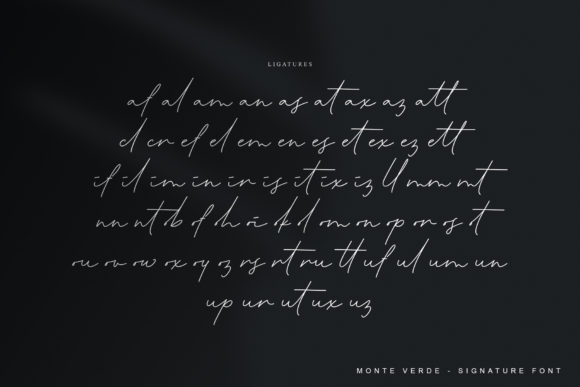 LIGATURES
af al am an as at ax az att
cl cr ef el em en es et ex ez ett
if il im in ir is it ix iz ll mm mt
nn nt ob of oh oi ok ol om on op or os ot
ou ov ow ox oy oz rs rt ru tt uf ul um un
up ur ut ux uz
MONTE VERDE - SIGNATURE FONT